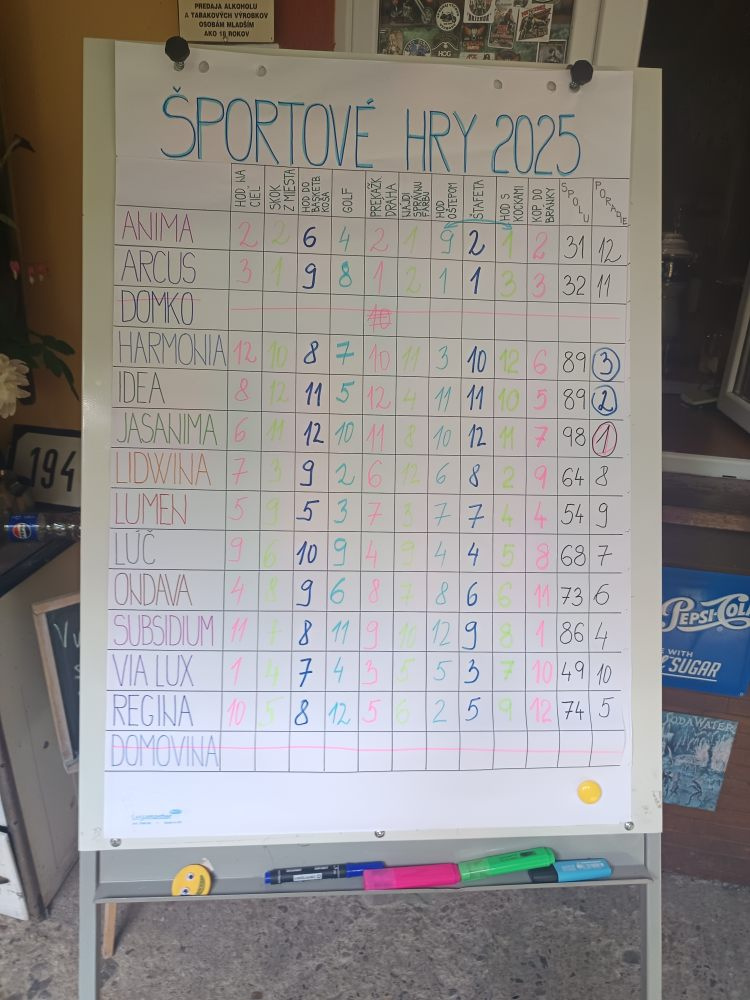 PREDAJA ALKOHOLU
A TABAKOVÝCH VÝROBKOV
OSOBÁM MLADŠÍM
AKO 18 ROKOV
HOG
ŠPORTOVÉ HRY 2025
HOD NA CIEĽ SKOK Z MIESTA HOD DO BASKETB. KOŠA GOLF PREKÁŽK. DRÁHA NÁJDI SPRÁVNU FARBU HOD OŠTEPOM ŠTAFETA HOD S KOCKAMI KOP DO BRÁNKY SPOLU PORADIE
ANIMA 2 2 6 4 2 1 9 2 1 2 31 12
ARCUS 3 1 9 8 1 2 1 1 3 3 32 11
DOMKO 10
HARMONIA 12 10 8 7 10 11 3 10 12 6 89 3
IDEA 8 12 11 5 12 4 11 11 10 5 89 2
JASANIMA 6 11 12 10 11 8 10 12 11 7 98 1
LIDWINA 7 3 9 2 6 12 6 8 2 9 64 8
LUMEN 5 9 5 3 7 3 7 7 4 4 54 9
LÚČ 9 6 10 9 4 9 4 4 5 8 68 7
ONDAVA 4 8 9 6 8 7 8 6 6 11 73 6
SUBSIDIUM 11 7 8 11 9 10 12 9 8 1 86 4
VIA LUX 1 4 7 4 3 5 5 3 7 10 49 10
REGINA 10 5 8 12 5 6 2 5 9 12 74 5
DOMOVINA
194
pepsi
PEPSI-COLA
MADE WITH
SUGAR
SODA WATER